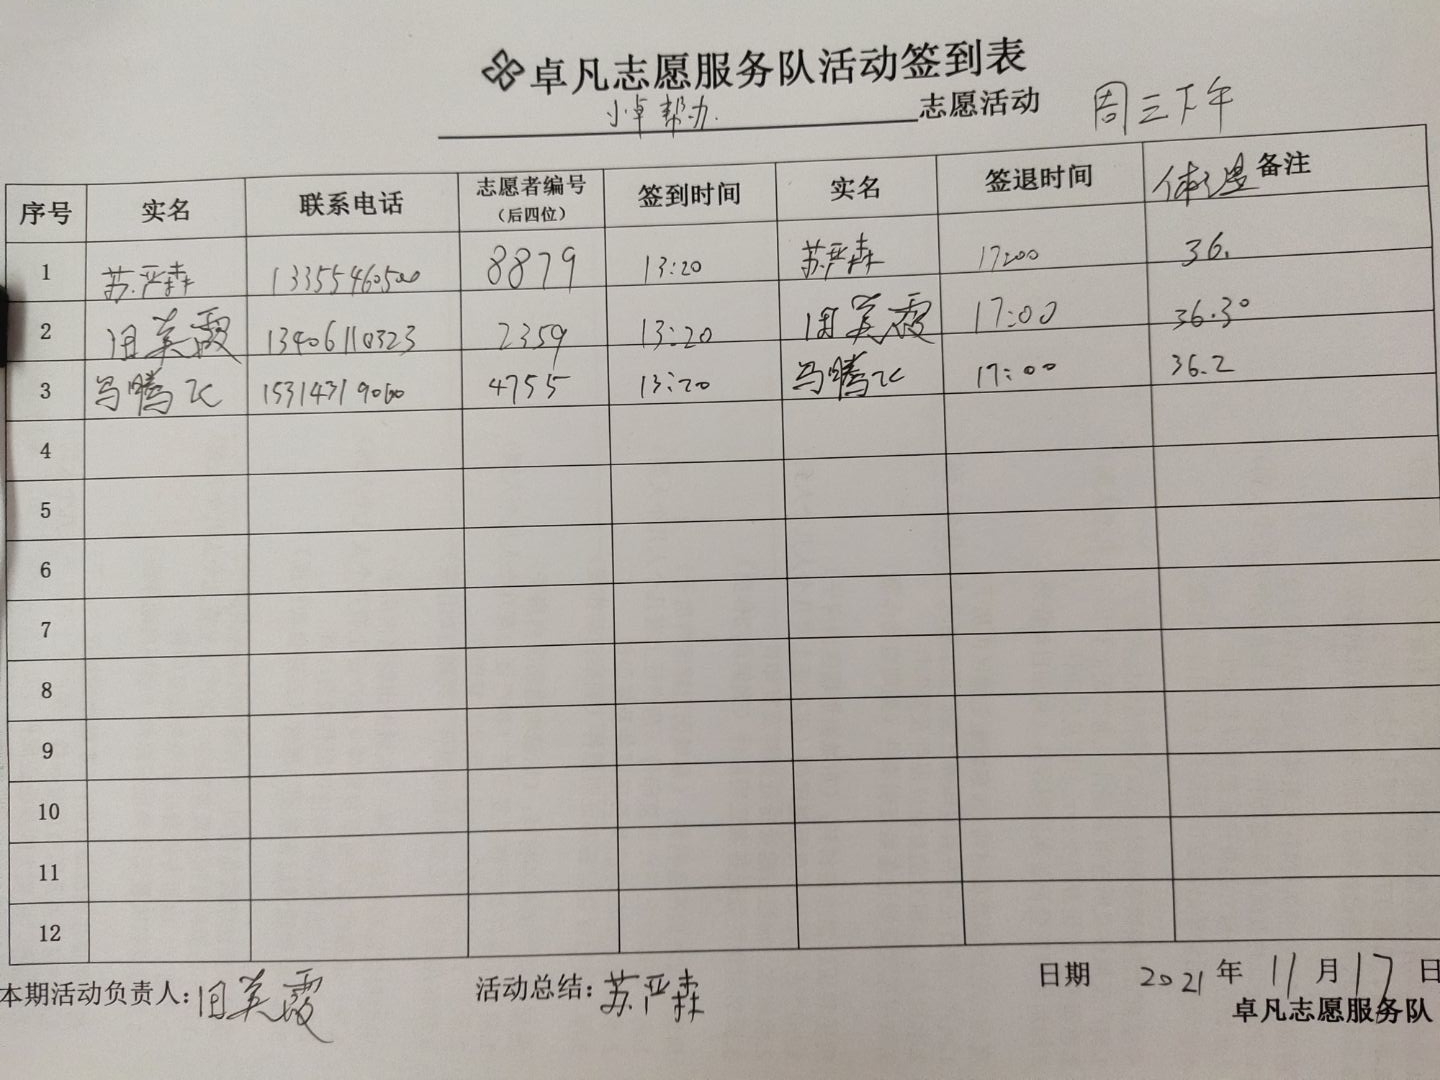 卓凡志愿服务队活动签到表
小卓帮办 志愿活动 周三下午
序号 实名 联系电话 志愿者编号（后四位） 签到时间 实名 签退时间 体温 备注
1 苏严森 13355460500 8879 13:20 苏严森 17:00 36.
2 田英霞 13406110323 2359 13:20 田英霞 17:00 36.3°
3 马腾飞 15314319060 4755 13:20 马腾飞 17:00 36.2
4
5
6
7
8
9
10
11
12
本期活动负责人: 田英霞 活动总结: 苏严森 日期 2021 年 11 月 17 日
卓凡志愿服务队